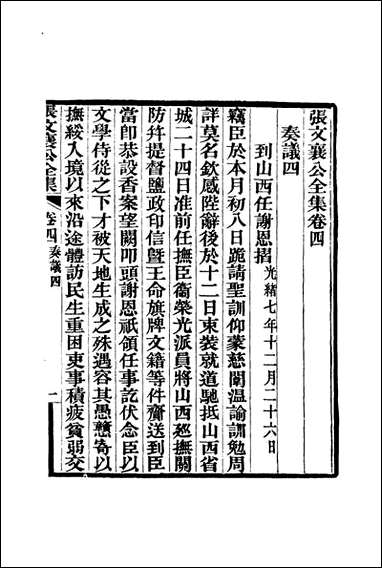 張文襄公全集卷四
奏議四
到山西任謝恩摺光緒七年十二月二十六日
竊臣於本月初八日跪請聖訓仰蒙慈闈温諭訓勉周
詳莫名欽感陛辭後於十二日束裝就道馳抵山西省
城二十四日准前任撫臣衞榮光派員將山西廵撫關
防幷提督鹽政印信暨王命旗牌文籍等件齎送到臣
當卽恭設香案望闕叩頭謝恩祇領任事訖伏念臣以
文學侍從之下才被天地生成之殊遇容其愚戇寄以
撫綏入境以來沿途體訪民生重困吏事積疲貧弱交
張文襄公全集
卷四奏議四
一